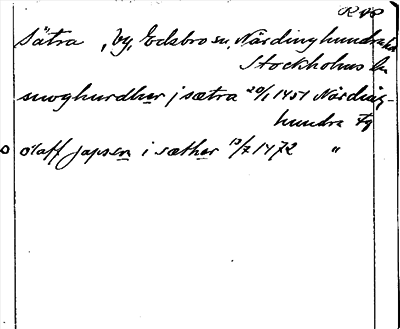 R 48
Sätra , by, Edsbro sn, Närdinghundra hd
Stockholms län
smoghurdher j sætra 20/1 1451 Närding-
hundra Fq
o olaff japsen i sæther 13/7 1472 "